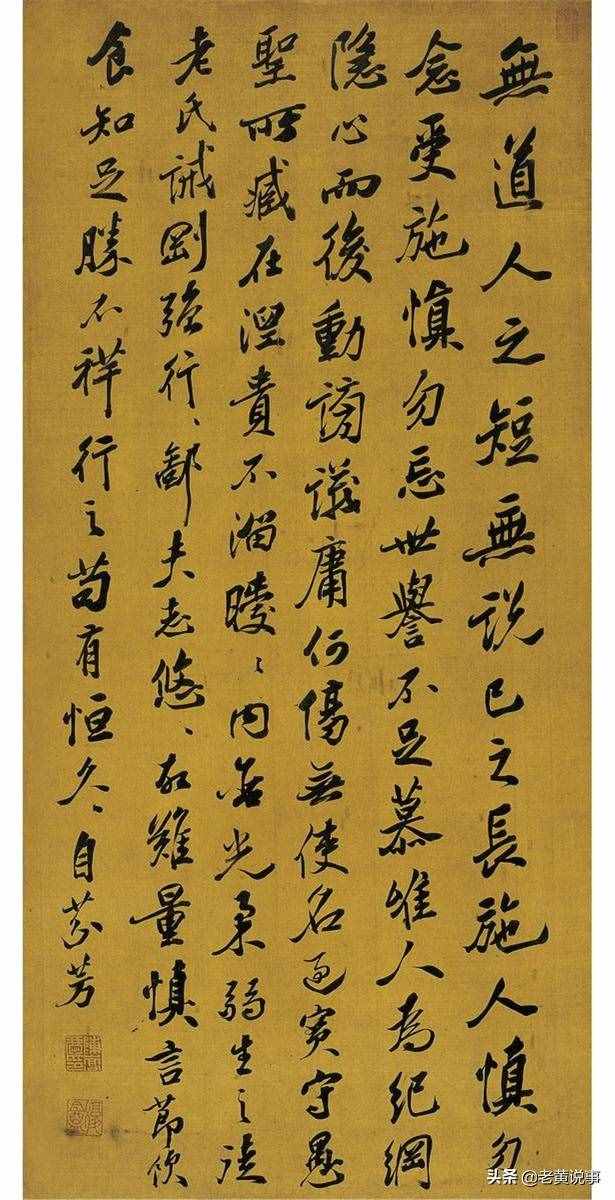 無道人之短無説己之長施人慎勿
念受施慎勿忘世譽不足慕唯人為紀綱
隱心而後動謗議庸何傷無使名過實守愚
聖所臧在涅貴不淄曖〻内含光柔弱生之徒
老氏誡剛強行〻鄙夫志悠〻故難量慎言節飲
食知足勝不祥行之苟有恒久〻自芬芳
头条 @老黄说事